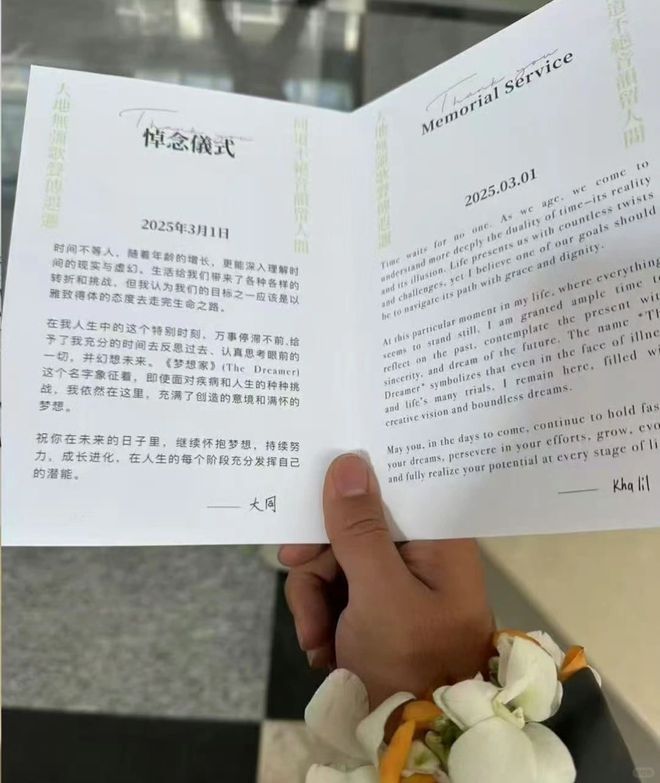 大地無強歌聲傳遐邇
同道不絕音韻留人間
Thank you
悼念儀式
2025年3月1日
时间不等人，随着年龄的增长，更能深入理解时
间的现实与虚幻。生活给我们带来了各种各样的
转折和挑战，但我认为我们的目标之一应该是以
雅致得体的态度去走完生命之路。
在我人生中的这个特别时刻，万事停滞不前,给
予了我充分的时间去反思过去、认真思考眼前的
一切，并幻想未来。《梦想家》(The Dreamer)
这个名字象征着，即使面对疾病和人生的种种挑
战，我依然在这里，充满了创造的意境和满怀的
梦想。
祝你在未来的日子里，继续怀抱梦想，持续努
力，成长进化，在人生的每个阶段充分发挥自己
的潜能。
—— 大同
大地無強歌聲傳遐邇
道不絕音韻留人間
Thank you
Memorial Service
2025.03.01
Time waits for no one. As we age, we come to
understand more deeply the duality of time—its reality
and its illusion. Life presents us with countless twists
and challenges, yet I believe one of our goals should
be to navigate its path with grace and dignity.
At this particular moment in my life, where everything
seems to stand still, I am granted ample time t
reflect on the past, contemplate the present wit
sincerity, and dream of the future. The name "Th
Dreamer" symbolizes that even in the face of illne
and life's many trials, I remain here, filled wi
creative vision and boundless dreams.
May you, in the days to come, continue to hold fas
your dreams, persevere in your efforts, grow, evo
and fully realize your potential at every stage of li
—— Khalil